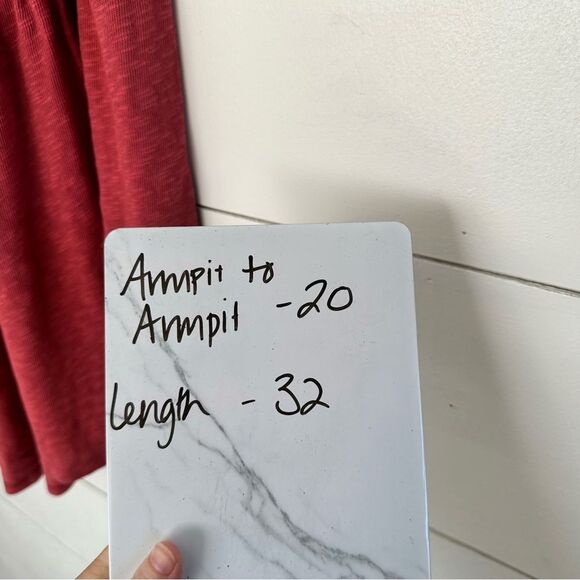 Armpit to
Armpit - 20
Length - 32